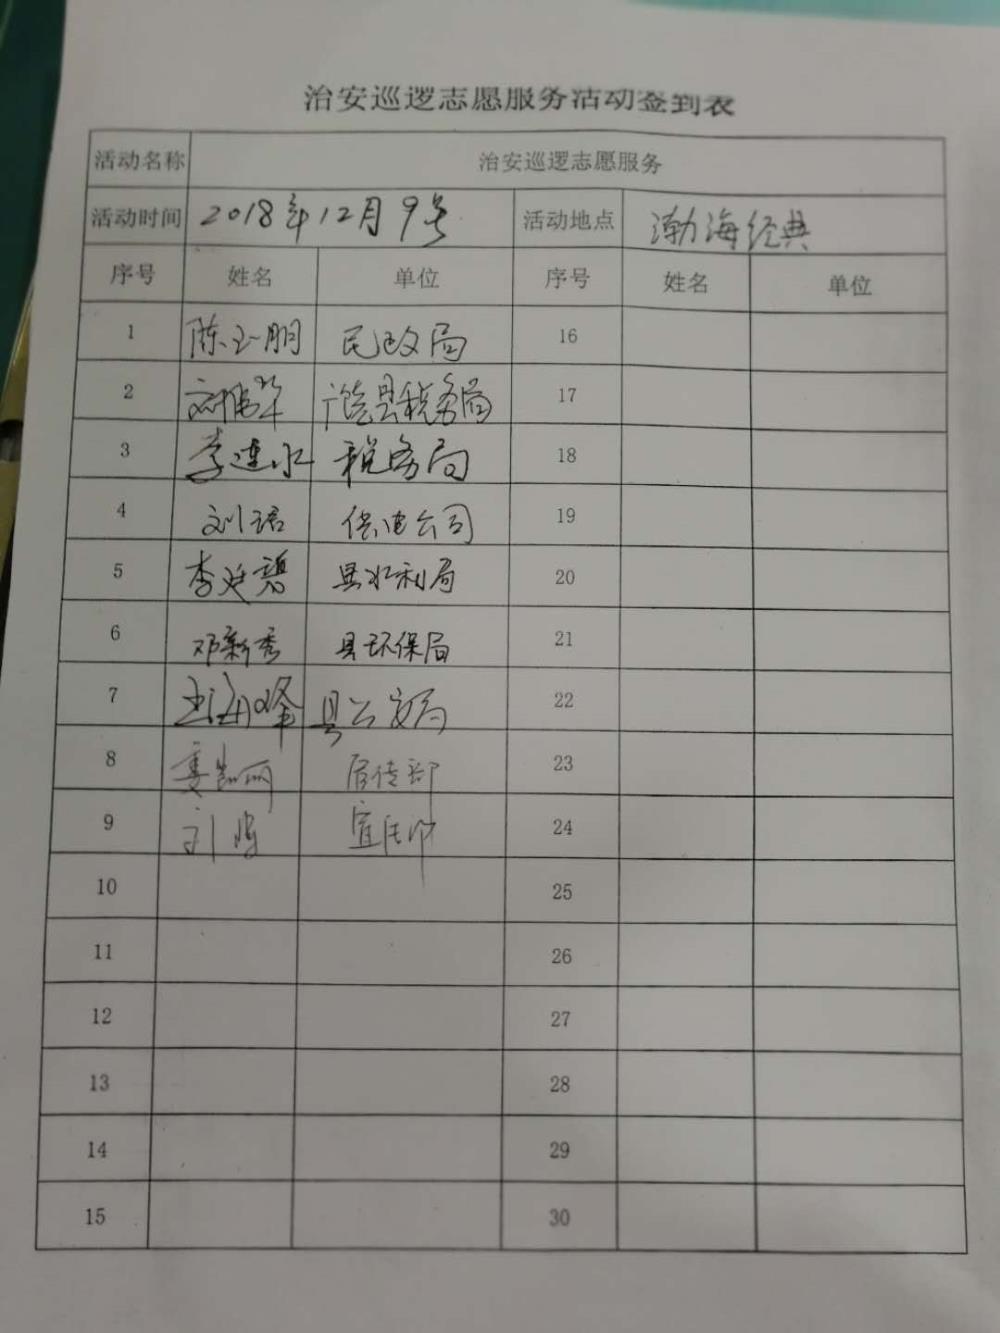 治安巡逻志愿服务活动签到表
活动名称 治安巡逻志愿服务
活动时间 2018年12月9号 活动地点 渤海经典
序号 姓名 单位 序号 姓名 单位
1 陈玉朋 民政局 16
2 刘伟华 广饶县税务局 17
3 李连水 税务局 18
4 刘 供电公司 19
5 李延 县水利局 20
6 邓新秀 县环保局 21
7 王海峰 县公安局 22
8 宣传部 23
9 刘 宣传部 24
10 25
11 26
12 27
13 28
14 29
15 30